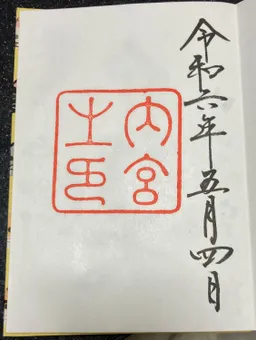 令和六年五月四日
内宮
之印